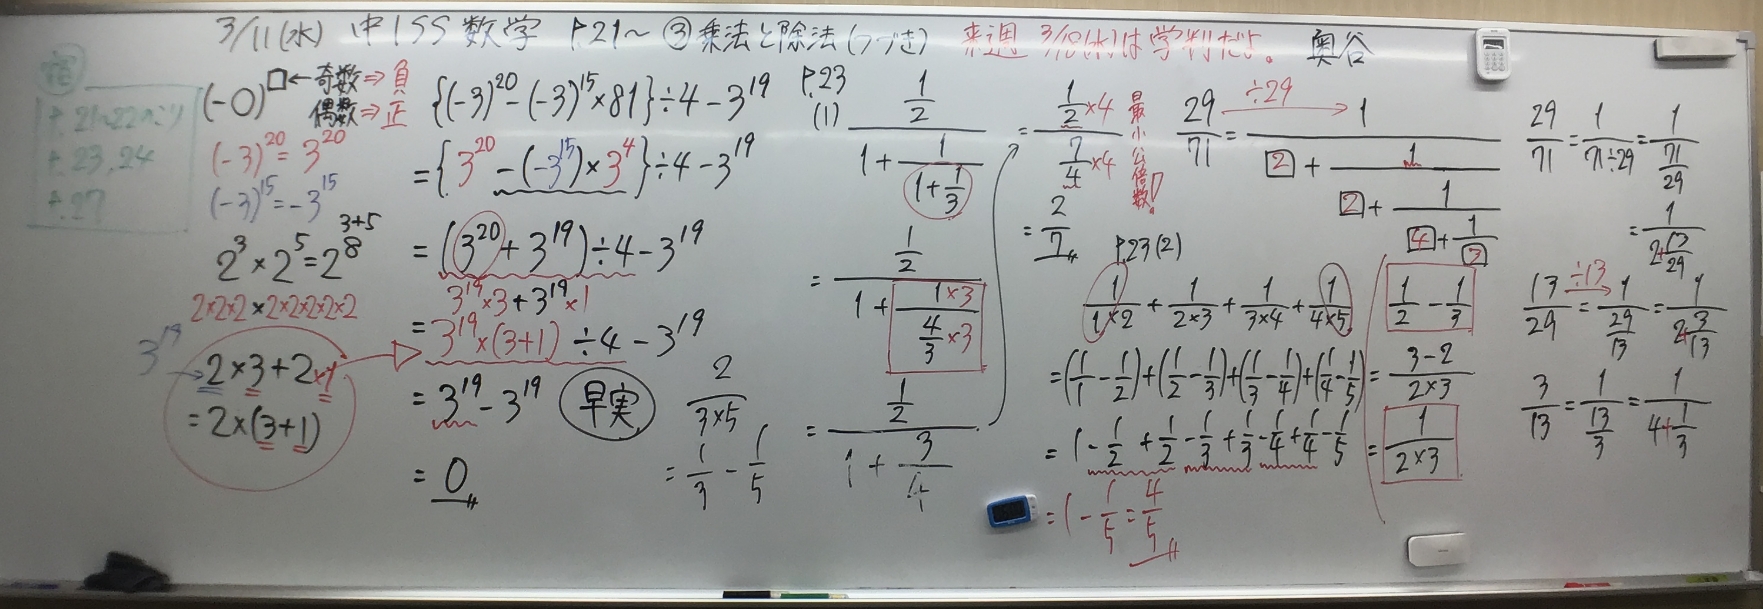 3/11(水) 中1SS 数学 P.21〜 ③乗法と除法(つづき) 来週 3/18(水)は学判だよ。 奥谷
宿
P.21〜22のこり
P.23,24
P.27
(-○)^□ ← 奇数 ⇒ 負
偶数 ⇒ 正
(-3)^20 = 3^20
(-3)^15 = -3^15
2^3 × 2^5 = 2^8
3+5
2×2×2×2×2×2×2×2
3^19 → 2×3+2×1
= 2×(3+1)
{(-3)^20 - (-3)^15 × 81} ÷ 4 - 3^19
= {3^20 - (-3^15) × 3^4} ÷ 4 - 3^19
= (3^20 + 3^19) ÷ 4 - 3^19
3^19×3 + 3^19×1
= 3^19×(3+1) ÷ 4 - 3^19
= 3^19 - 3^19
= 0
早実
2/(3×5)
= 1/3 - 1/5
P.23
(1) (1/2)/(1 + 1/(1 + 1/3))
= (1/2)/(1 + (1×3)/(4/3 ×3))
= (1/2)/(1 + 3/4)
= (1/2 ×4)/(7/4 ×4)
最小公倍数!
= 2/7
P.23(2)
1/(1×2) + 1/(2×3) + 1/(3×4) + 1/(4×5)
= (1/1 - 1/2) + (1/2 - 1/3) + (1/3 - 1/4) + (1/4 - 1/5)
= 1 - 1/2 + 1/2 - 1/3 + 1/3 - 1/4 + 1/4 - 1/5
= 1 - 1/5 = 4/5
÷29
29/71 = 1/(2 + 1/(2 + 1/(4 + 1/3)))
1/2 - 1/3
= (3-2)/(2×3)
= 1/(2×3)
29/71 = 1/(71÷29) = 1/(71/29)
= 1/(2+13/29)
÷13
13/29 = 1/(29/13) = 1/(2+3/13)
3/13 = 1/(13/3) = 1/(4+1/3)